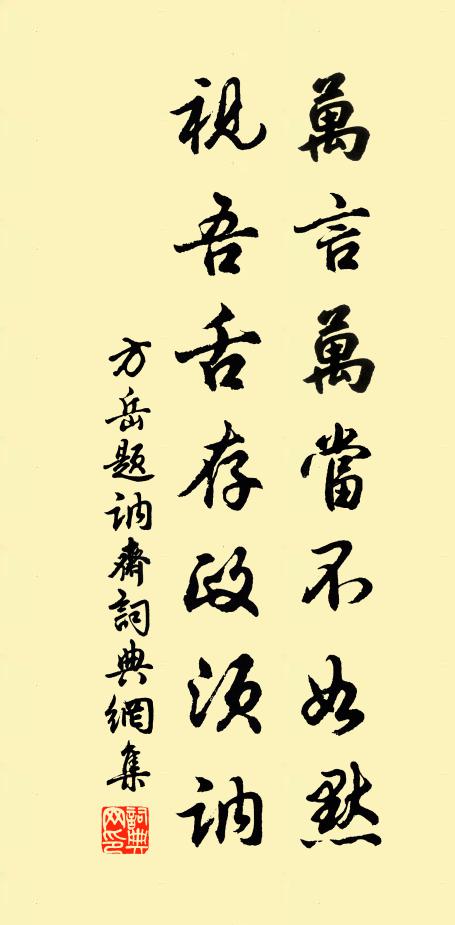 萬言萬當不如默
視吾舌存政須訥
方岳題訥齋詞典網集
詞典網印